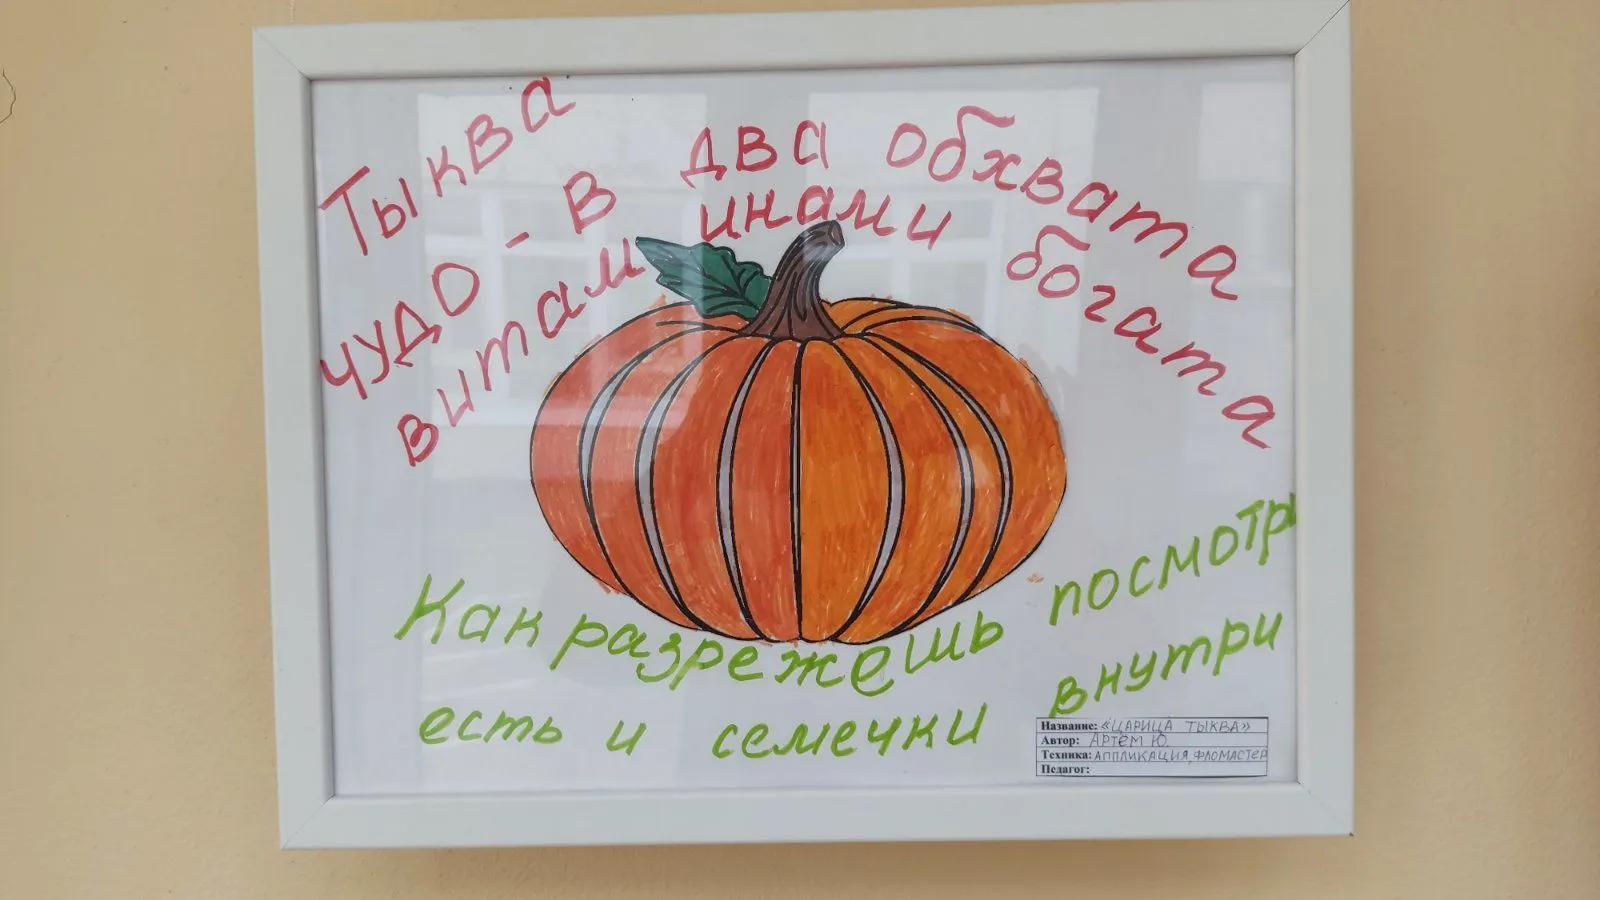 Тыква
чудо - в два обхвата
витаминами богата
Как разрежешь посмотри
есть и семечки внутри
Название: «ЦАРИЦА ТЫКВА»
Автор: АРТЁМ Ю.
Техника: АППЛИКАЦИЯ, ФЛОМАСТЕР
Педагог: